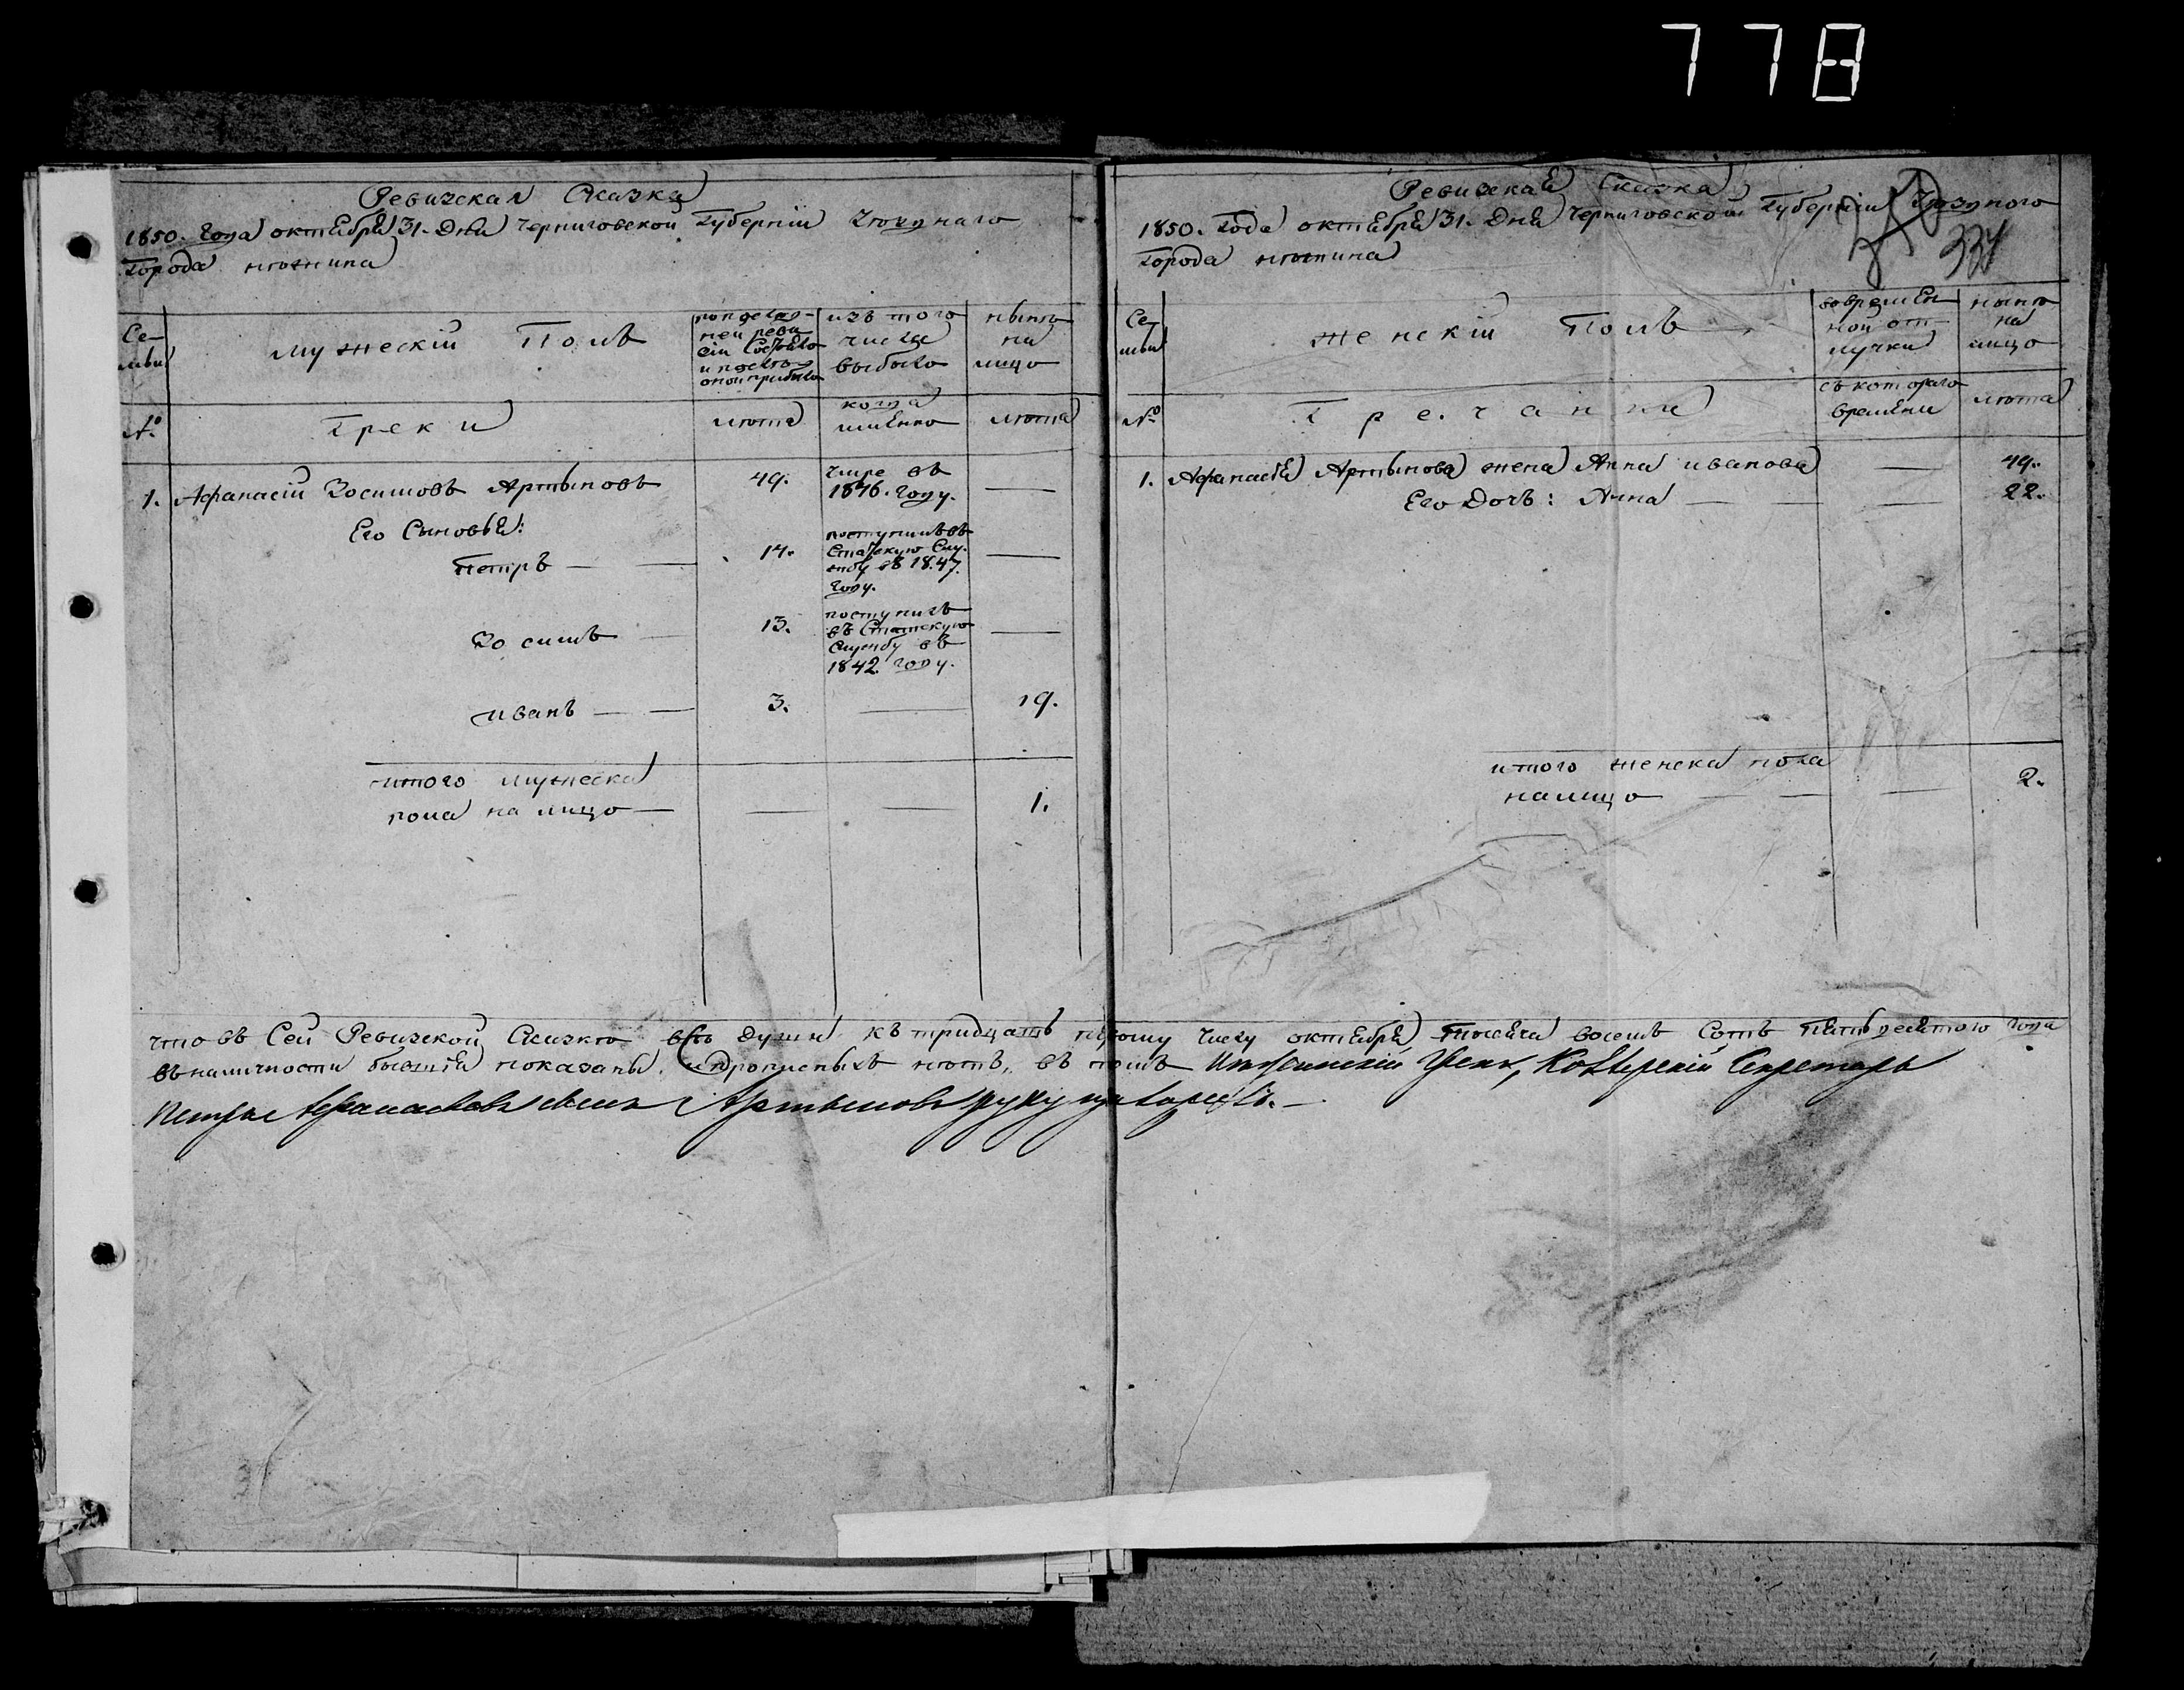 778
Ревизская Сказка
1850. Года октября 31. Дня Черниговской Губерніи Уѣзднаго
Города нѣжина
Се-
мьи
мужескій Полъ
по послед-
ней реви
сіи Состояло
и после
оной прибыло
изъ того
числа
выбыло
нынѣ
на
лицо
№
Греки
лѣта
когда
имѣнно
лѣта
1. Афанасій Зосимовъ Артыновъ
49.
умре въ
1846. году.
—
Его Сыновья:
Петръ — —
14.
поступилъ въ
Статскую Слу-
жбу въ 1847.
году.
—
Зосимъ —
13.
поступилъ
въ Статскую
Службу въ
1842. году.
—
иванъ — —
3.
—
19.
итого мужеска
пола на лицо — — —
1.
Ревизская Сказка
1850. Года октября 31. Дня Черниговской Губерніи Уѣздного
Города нѣжина
334
Се-
мьи
женскій Полъ
во времен
ной от
лучки
нынѣ
на
лицо
№
Гречанки
съ котораго
времени
лѣта
1. Афанасія Артынова жена Анна иванова —
49.
Его Дочь: Анна — —
22.
итого женска пола
на лицо — — —
2.
что въ Сей Ревизской Сказке всѣ души къ тридцать первому числу октября Тысяча восемъ Сотъ Пятьдесятого года
въ наличности бывшія показаны. и прописныхъ нѣтъ, въ томъ Нѣжинскій Грекъ, Коллежскій Секретарь
Петръ Афанасьевъ сынъ Артыновъ руку приложилъ. —